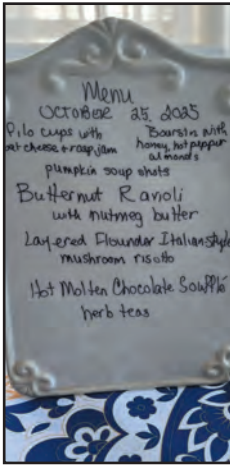 Menu
OCTOBER 25, 2025
Pilo cups with
cheese + rasp. jam
Boarsin with
honey, hot pepper
almonds
pumpkin soup shots
Butternut Ravioli
with nutmeg butter
Layered Flounder Italian style
mushroom risotto
Hot Molten Chocolate Soufflé
herb teas